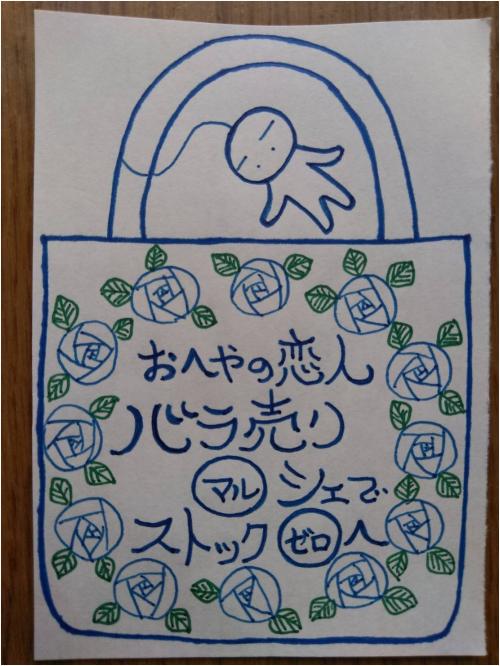 おへやの恋人
バラ売り
マルシェで
ストックゼロへ